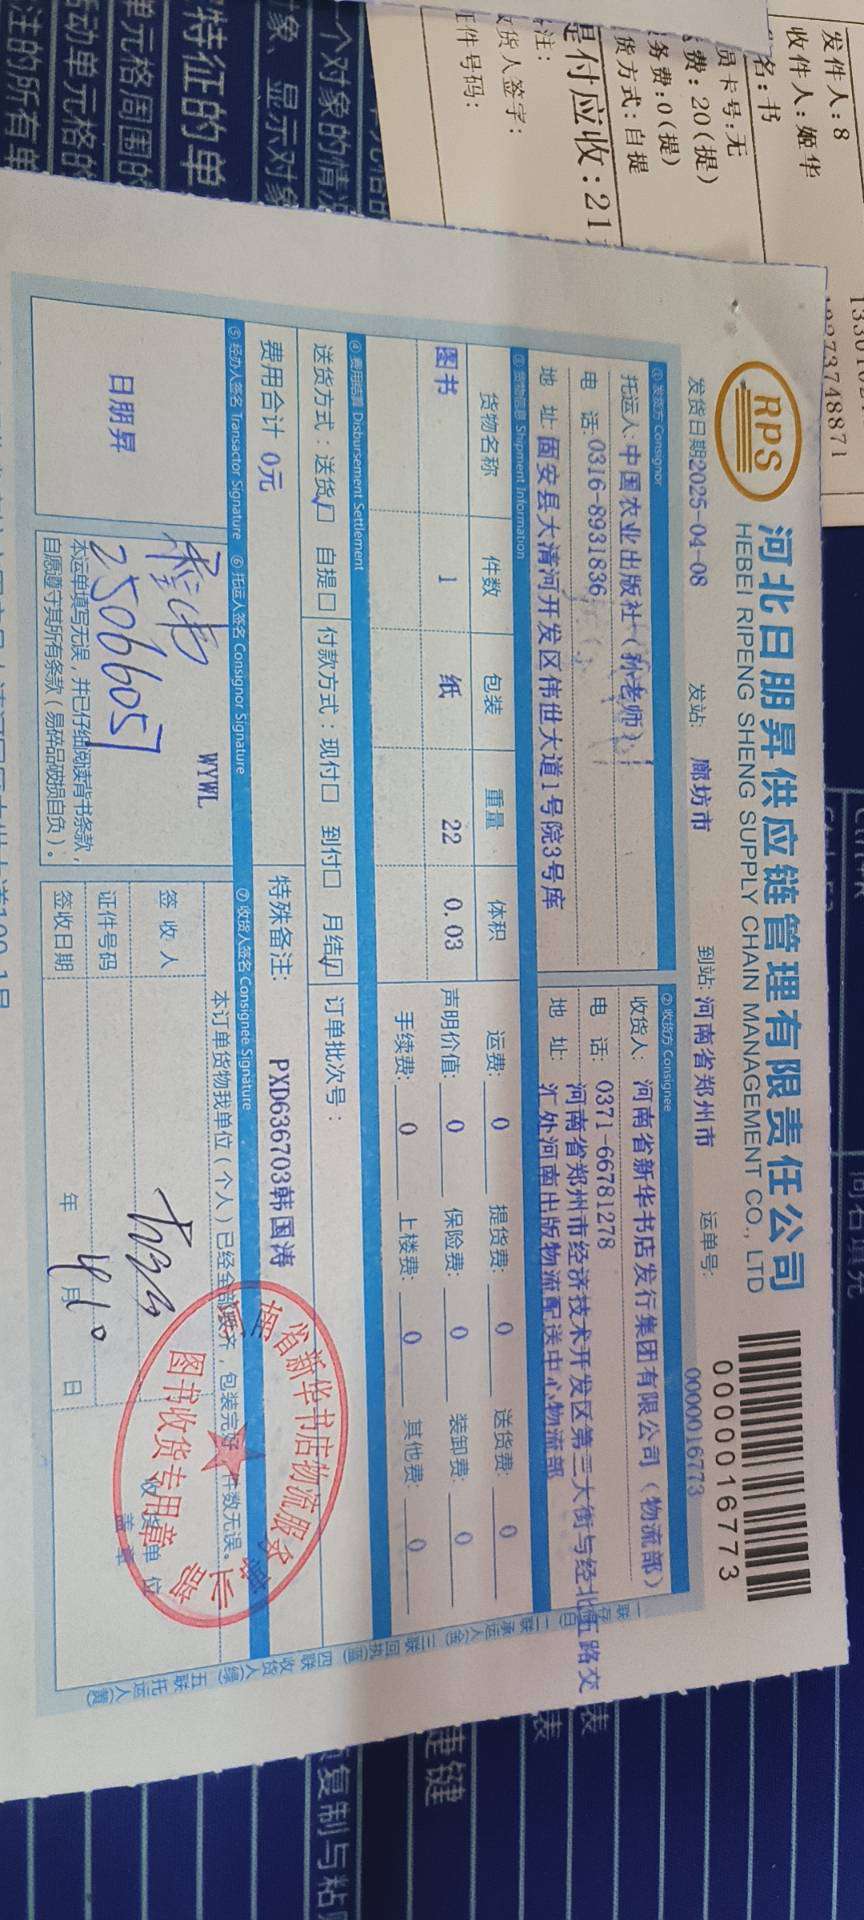 RPS
河北日朋昇供应链管理有限责任公司
HEBEI RIPENG SHENG SUPPLY CHAIN MANAGEMENT CO., LTD
0000016773
发货日期2025-04-08 发站: 廊坊市 到站: 河南省郑州市 运单号: 0000016773
① 发货方 Consignor
托运人: 中国农业出版社 (孙老师)
电 话: 0316-8931836
地 址: 固安县大清河开发区伟世大道1号院3号库
② 收货方 Consignee
收货人: 河南省新华书店发行集团有限公司 (物流部)
电 话: 0371-66781278
地 址: 河南省郑州市经济技术开发区第三大街与经北五路交
汇处河南出版物流配送中心物流部
③ 货物信息 Shipment Information
货物名称 件数 包装 重量 体积
图书 1 纸 22 0.03
运费: 0 提货费: 0 送货费: 0
声明价值: 0 保险费: 0 装卸费: 0
手续费: 0 上楼费: 0 其他费: 0
④ 费用结算 Disbursement Settlement
送货方式: 送货☑ 自提□ 付款方式: 现付□ 到付□ 月结☑ 订单批次号:
费用合计 0元 特殊备注: PXD636703韩国涛
⑤ 经办人签名 Transactor Signature
日朋昇
⑥ 托运人签名 Consignor Signature
WYWL
2506605
本运单填写无误, 并已仔细阅读背书条款,
自愿遵守其所有条款 (易碎品破损自负)。
⑦ 收货人签名 Consignee Signature
本订单货物我单位 (个人) 已经全部收齐, 包装完好, 件数无误。
签 收 人
证件号码
签收日期 年 4月10日
收货单位
盖 章
南省新华书店物流服务
图书收货专用章
一联存
二联承运人
三联回执
四联收货人
五联托运人
发件人: 8
收件人: 姬华
名: 书
员卡号: 无
费: 20(提)
务费: 0(提)
货方式: 自提
是付应收: 21
注:
货人签字:
证件号码:
13273748871
个对象的情况
对象、显示对象
特征的单
单元格周围的
活动单元格的
注的所有单
复制与粘贴
捷键